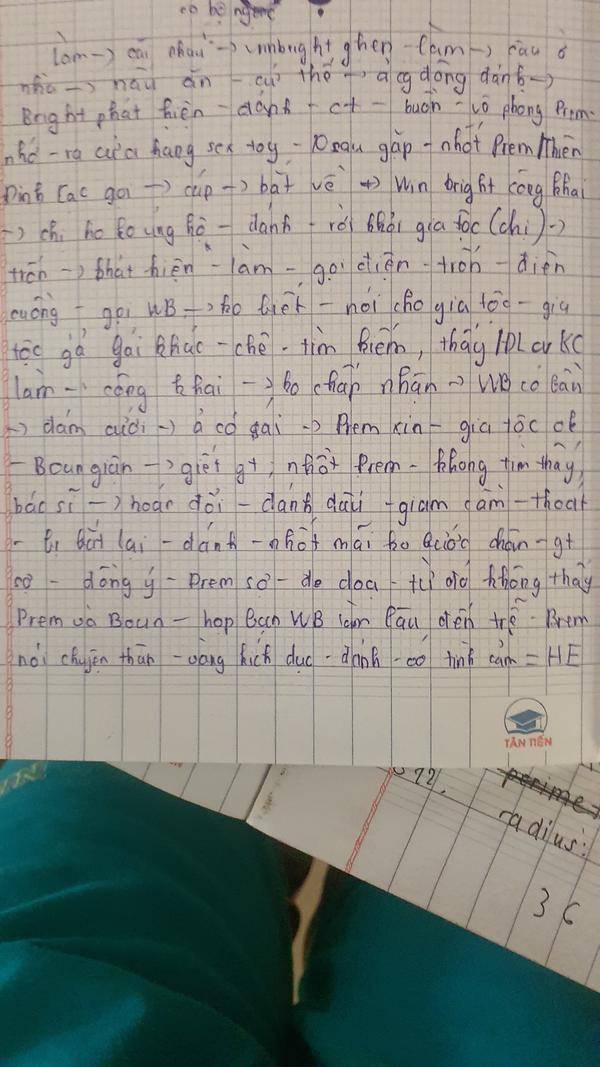 có bộ ngực
làm -> cãi nhau -> winbright ghen - làm -> câu ở
nhà -> nấu ăn - cứ thế -> ả cg dông đánh ->
Bright phát hiện - đánh - ct - buồn - vô phòng Prem-
nhớ - ra cửa hàng sex toy - Dsau gặp - nhốt Prem/Thiên
Dinh Lạc gọi -> cúp -> bắt về -> Win bright công khai
-> chị ko ủng hộ - đánh - rời khỏi gia tộc (chị) ->
trốn -> phát hiện - làm - gọi điện - trốn - điên
cuồng - gọi WB -> ko biết - nói cho gia tộc - gia
tộc gả gái khác - chê - tìm kiếm, thấy KC
làm - công khai -> ko chấp nhận -> WB có bần
-> đám cưới -> ả có gái -> Prem xin - gia tộc ok
- Boun giận -> giết gt, nhốt Prem - không tìm thấy,
bác sĩ -> hoán đổi - đánh dấu - giam cầm - thoát
- bị bắt lại - đánh - nhốt mãi ko bước chân - gt
sợ - đồng ý - Prem sợ - đe dọa - từ đó không thấy
Prem và Boun - họp bạn WB làm lâu đến trễ - Prem
nói chuyện thân - vòng kích dục - đánh - có tình cảm = HE
TÂN TIẾN
22.
radius:
36